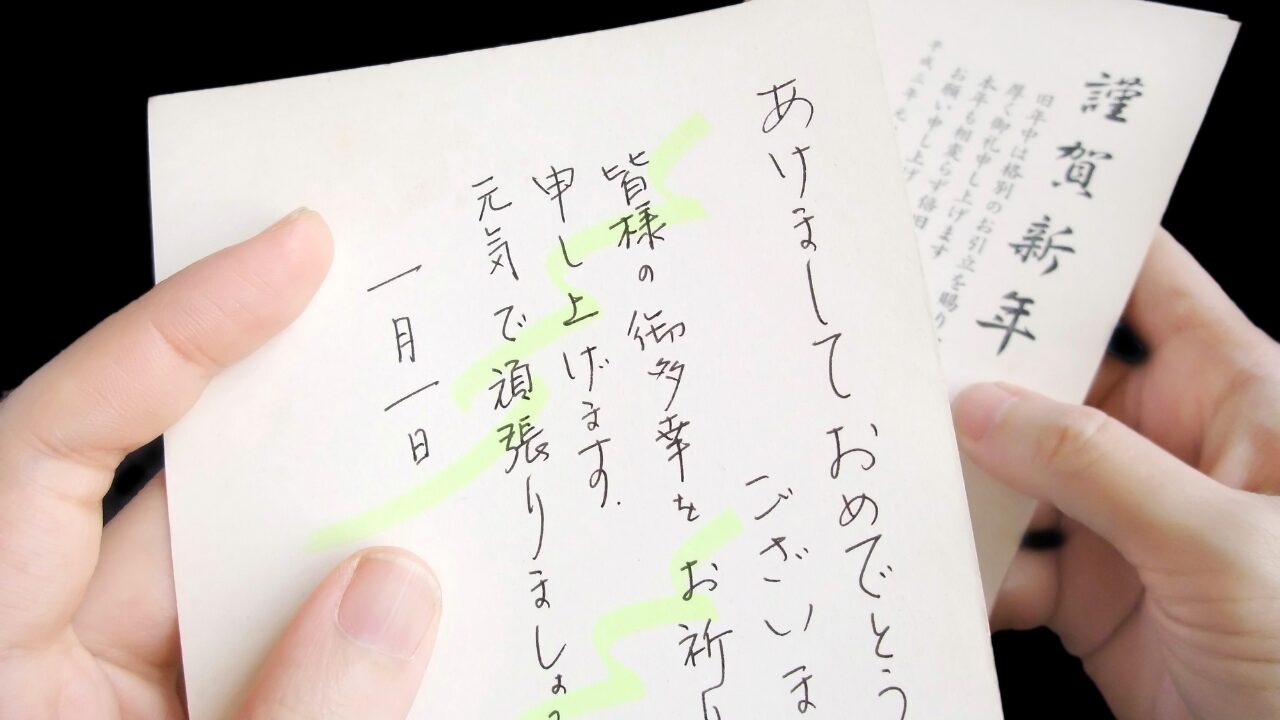 あけましておめでとう
ございま
皆様の御多幸をお祈り
申し上げます.
元気で頑張りましょ
一月一日
謹賀新年
旧年中は格別のお引立を賜り
厚く御礼申し上げます
本年も相変らず倍旧
お願い申し上げ
平成三年元